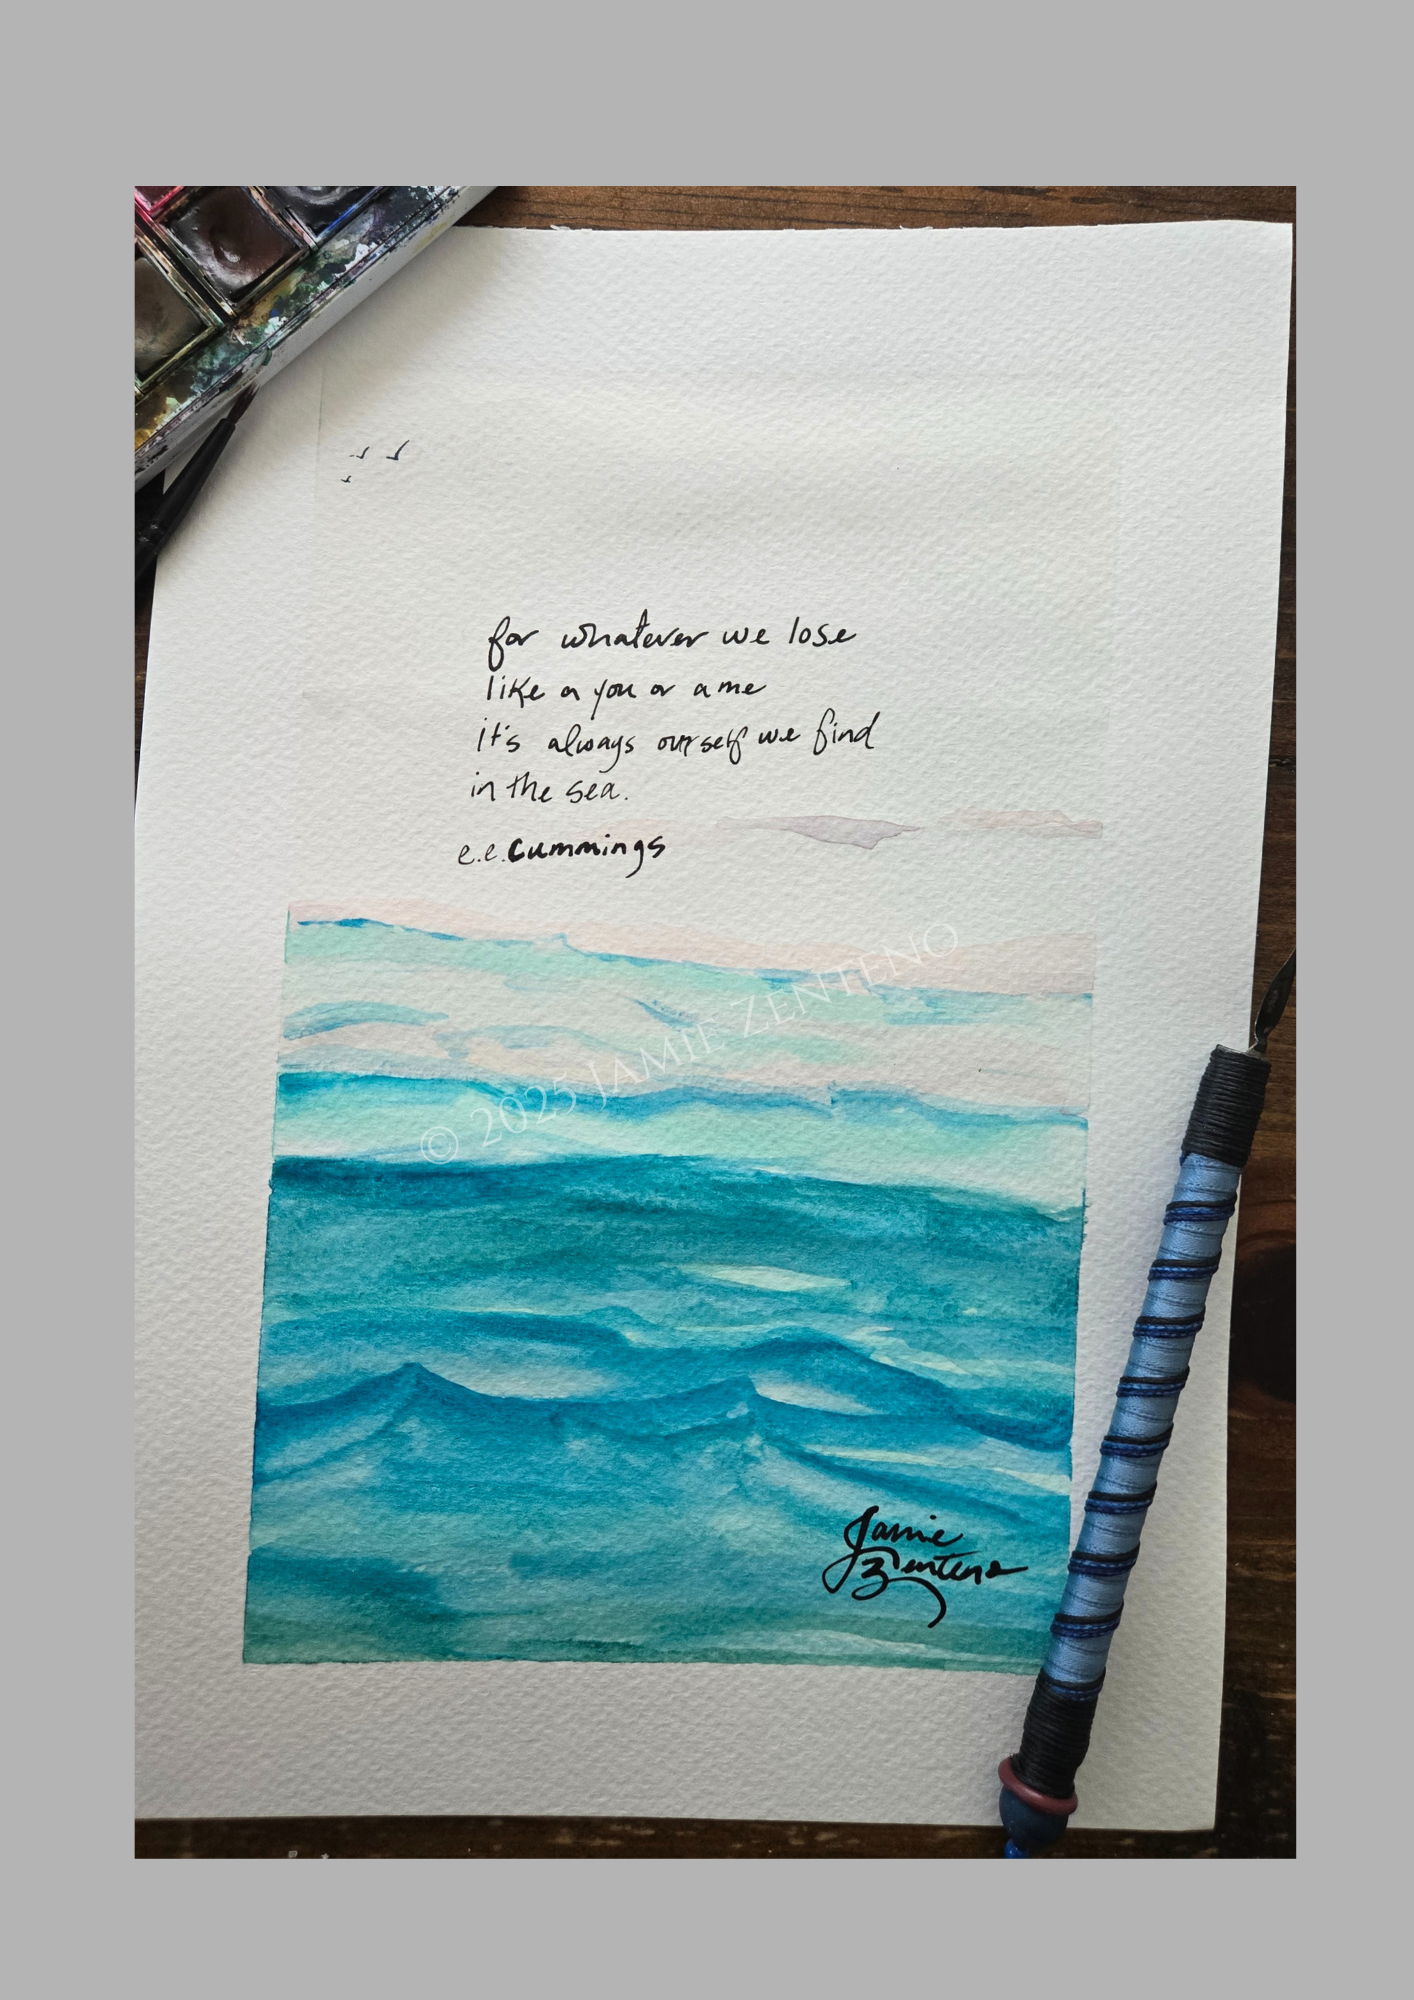 for whatever we lose
like a you or a me
it's always ourself we find
in the sea.
e.e. cummings
© 2025 Jamie Zenteno
Jamie
Zenteno